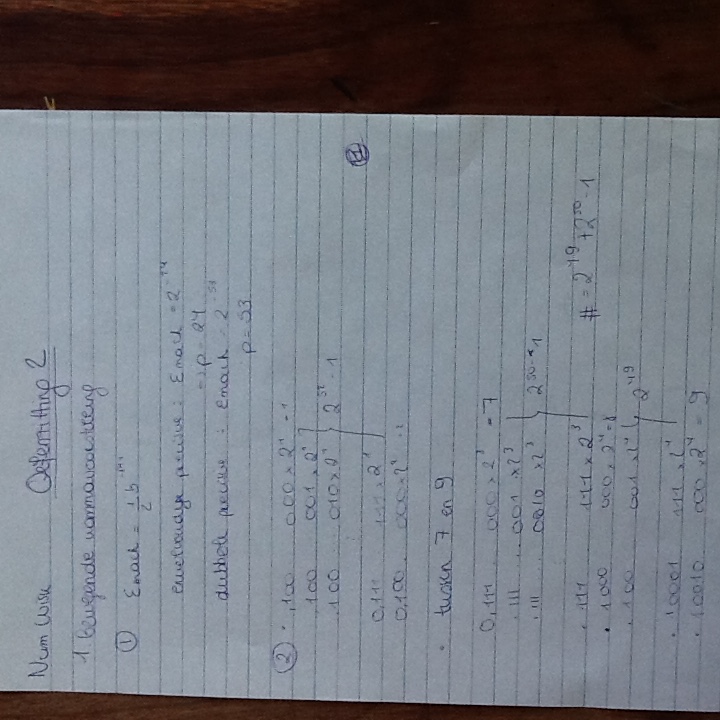 Num Wisk Oefenzitting 2
1 Bewegende kommavoorstelling
① Emach = 1/2 b^-p+1
enkelvoudige precisie : Emach = 2^-24
=> p = 24
dubbele precisie : Emach = 2^-53
p = 53
② · ,100 000 × 2^1 = 1
,100 001 × 2^1
,100 010 × 2^1 } 2^52 - 1
⋮
0,111 111 × 2^1
0,100 000 × 2^2 = 2
· tussen 7 en 9
0,111 000 × 2^3 = 7
.111 .. 001 × 2^3
.111 .. 0010 × 2^3 } 2^50 - 1
.111 111 × 2^3 # = 2^49 + 2^50 - 1
.1000 000 × 2^4 = 8
.100 001 × 2^4 } 2^49
.10001 111 × 2^4
.10010 000 × 2^4 = 9